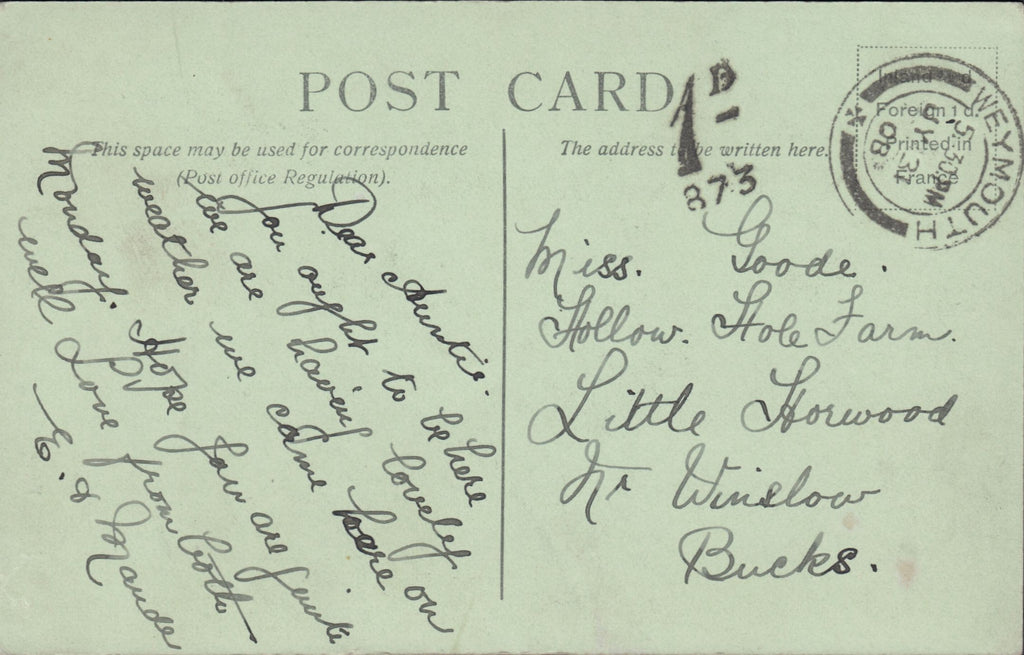 POST CARD
This space may be used for correspondence
(Post office Regulation).
The address to be written here.
Foreign 1d.
Printed in
France
WEYMOUTH
5.30 PM
JY 30
08
1D
873
Dear Auntie.
You ought to be here
We are having lovely
weather we came here on
Monday. Hope you are quite
well Love from both
E. & Maude
Miss. Goode.
Hollow. Hole Farm.
Little Horwood
Nr Winslow
Bucks.